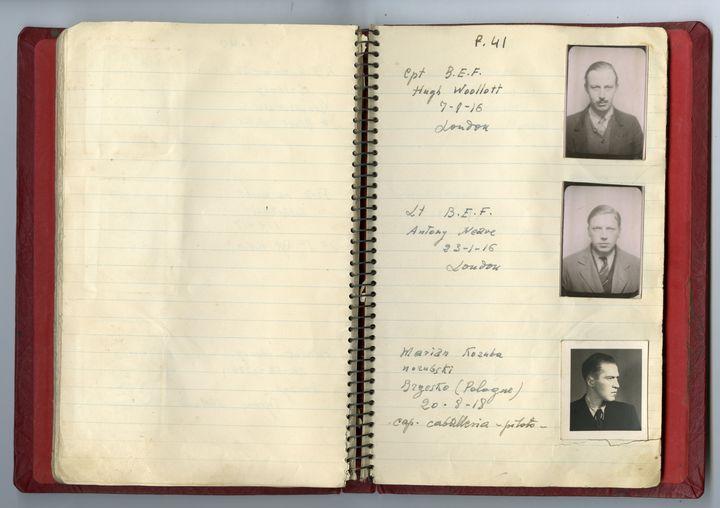 P. 41
Cpt B.E.F.
Hugh Woollatt
7-9-16
London
Lt B.E.F.
Antony Neave
23-1-16
London
Marian Kozuba
nozubski
Brzesko (Pologne)
20-8-18
cap. caballeria - piloto -